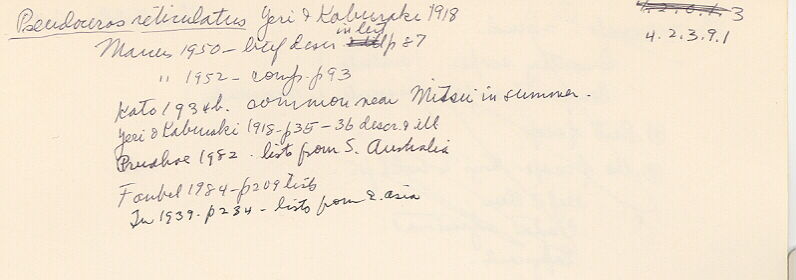 Pseudoceros reticulatus Yeri & Kaburaki 1918
3
4.2.3.9.1
Marcus 1950 - brief descr in list p 87
" 1952 - comp. p93
Kato 1934b. common near Mitsui in summer.
Yeri & Kaburaki 1918 - p35 - 36 descr & ill
Prudhoe 1982 - lists from S. Australia
Faubel 1984 - p209 lists
1939 - p234 - lists from E. asia